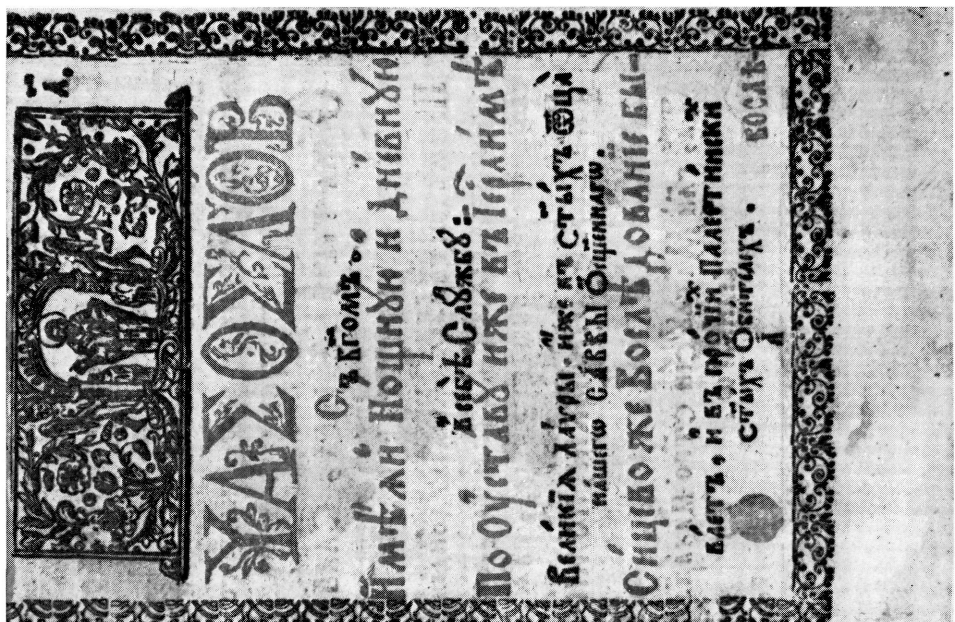 а҃.
ЧАСОСЛОВ
Съ Бг҃омъ.
Имѣѧй Нощнꙋю и Дневнꙋю
всю Слꙋжбꙋ:
По Оуставꙋ иже въ Іерⷭ҇лимѣ
Великїѧ Лаѵры, иже въ ст҃ыхъ Ѿца
нашегѡ Саввы Ѡсщ҃еннагѡ.
Сицево же Восл
ѣдованїе бы-
ваетъ, и въ прочїиⷯ Палестинскиⷯ
ст҃ыхъ Ѡбителеⷯ.
А
вослѣ